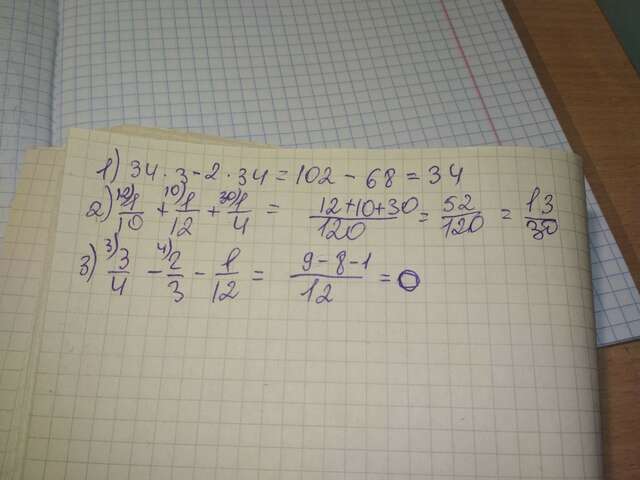 1) 34 · 3 - 2 · 34 = 102 - 68 = 34
2) 12) 1/10 + 10) 1/12 + 30) 1/4 = 12+10+30/120 = 52/120 = 13/30
3) 3) 3/4 - 4) 2/3 - 1/12 = 9-8-1/12 = 0